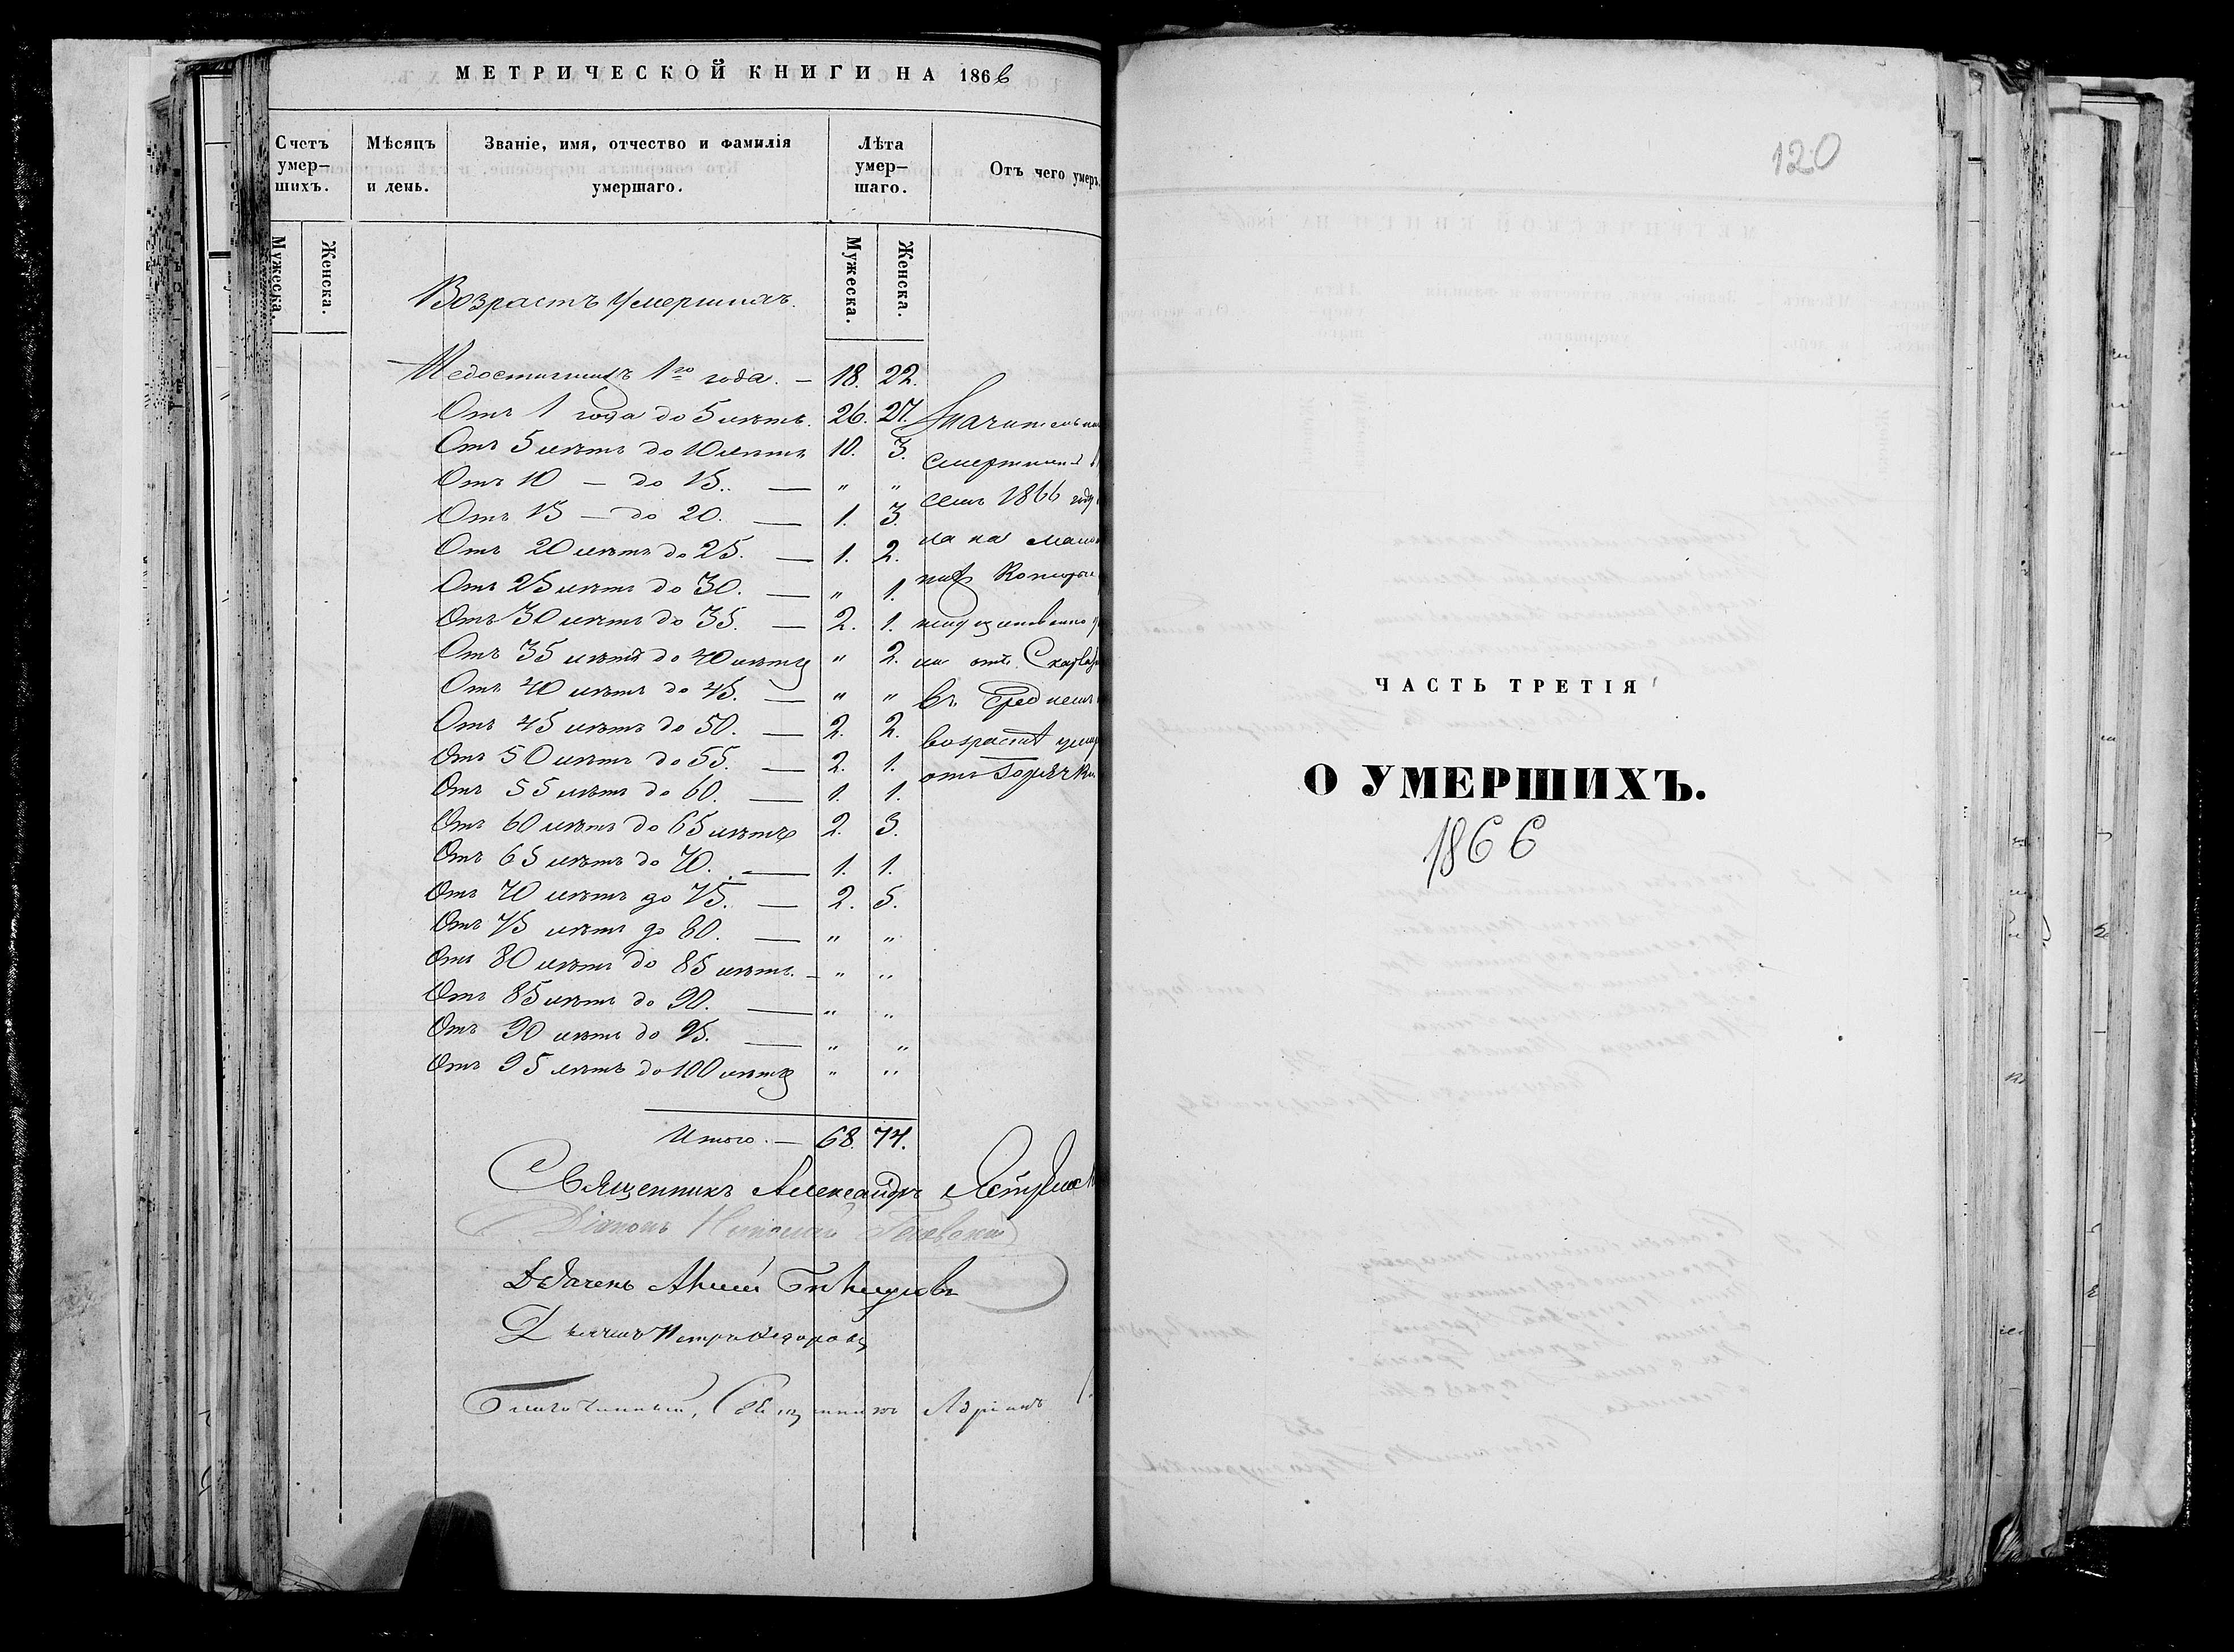 МЕТРИЧЕСКОЙ КНИГИ НА 1866
Счетъ умер-шихъ.
Мѣсяцъ и день.
Званіе, имя, отчество и фамилія умершаго.
Лѣта умер-шаго.
Отъ чего умеръ
Мужеска. Женска.
Мужеска. Женска.
Возрастъ умершихъ.
Недостигшихъ 1го года. — 18. 22.
Отъ 1 года до 5 лѣтъ. 26. 27. Значительн
Отъ 5 лѣтъ до 10 лѣтъ 10. 3. смертност
Отъ 10 — до 15. — " " семъ 1866 год
Отъ 15 — до 20. — 1. 3. ла на мало
Отъ 20 лѣтъ до 25. — 1. 2.
Отъ 25 лѣтъ до 30. — " 1. которы
Отъ 30 лѣтъ до 35. — 2. 1.
Отъ 35 лѣтъ до 40 лѣтъ " 2. ли отъ Скарла
Отъ 40 лѣтъ до 45. — " " въ среднемъ
Отъ 45 лѣтъ до 50. — 2. 2. возрастѣ умир
Отъ 50 лѣтъ до 55. — 2. 1. отъ Горячк
Отъ 55 лѣтъ до 60. — 1. 1.
Отъ 60 лѣтъ до 65 лѣтъ 2. 3.
Отъ 65 лѣтъ до 70. — 1. 1.
Отъ 70 лѣтъ до 75. — 2. 5.
Отъ 75 лѣтъ до 80. — " "
Отъ 80 лѣтъ до 85 лѣтъ. — " "
Отъ 85 лѣтъ до 90. — " "
Отъ 90 лѣтъ до 95. — " "
Отъ 95 лѣтъ до 100 лѣтъ " "
Итого. — 68. 74.
Священникъ Александръ
Діаконъ
Дьячекъ
Дьячекъ Петръ Федоровъ
Благочинный, Священникъ Адріанъ
120
ЧАСТЬ ТРЕТІЯ
О УМЕРШИХЪ.
1866